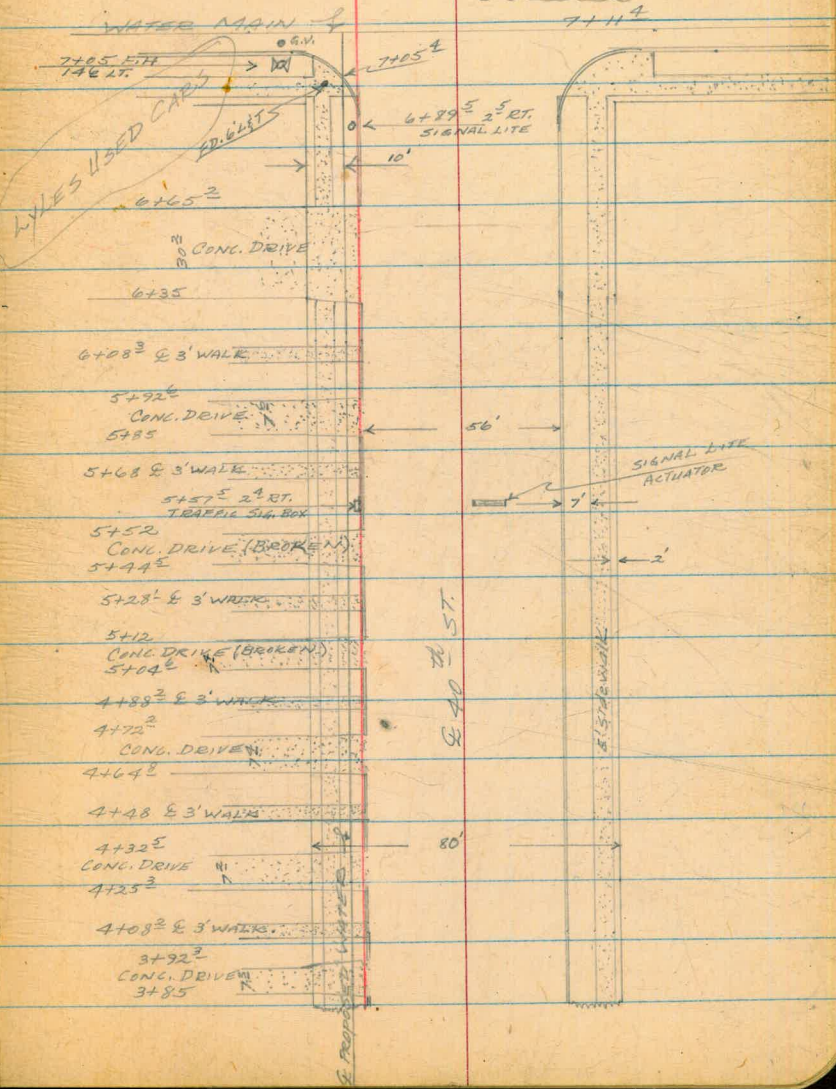 WATER MAIN ℄
7+11⁴
G.V.
7+05 F.H
14⁶ LT.
7+05⁴
LYLES USED CARS
FD. 6" L&T S
6+89⁵ 2⁵ RT.
SIGNAL LITE
10'
6+65²
30² CONC. DRIVE
6+35
6+08³ ℄ 3' WALK
5+92⁶
CONC. DRIVE 7⁶
5+85
56'
5+68 ℄ 3' WALK
SIGNAL LITE
ACTUATOR
5+57⁵ 2⁴ RT.
TRAFFIC SIG. BOX
7'
5+52
CONC. DRIVE (BROKEN)
5+44⁵
2'
5+28¹ ℄ 3' WALK
5+12
CONC DRIVE (BROKEN)
5+04⁶ 7⁴
4+88² ℄ 3' WALK
℄ 40th ST.
5' Sidewalk
4+72²
CONC. DRIVE 7⁴
4+64⁸
4+48 ℄ 3' WALK
4+32⁵
CONC. DRIVE 7²
4+25³
80'
4+08² ℄ 3' WALK.
3+92³
CONC. DRIVE 7³
3+85
℄ PROPOSED WATER